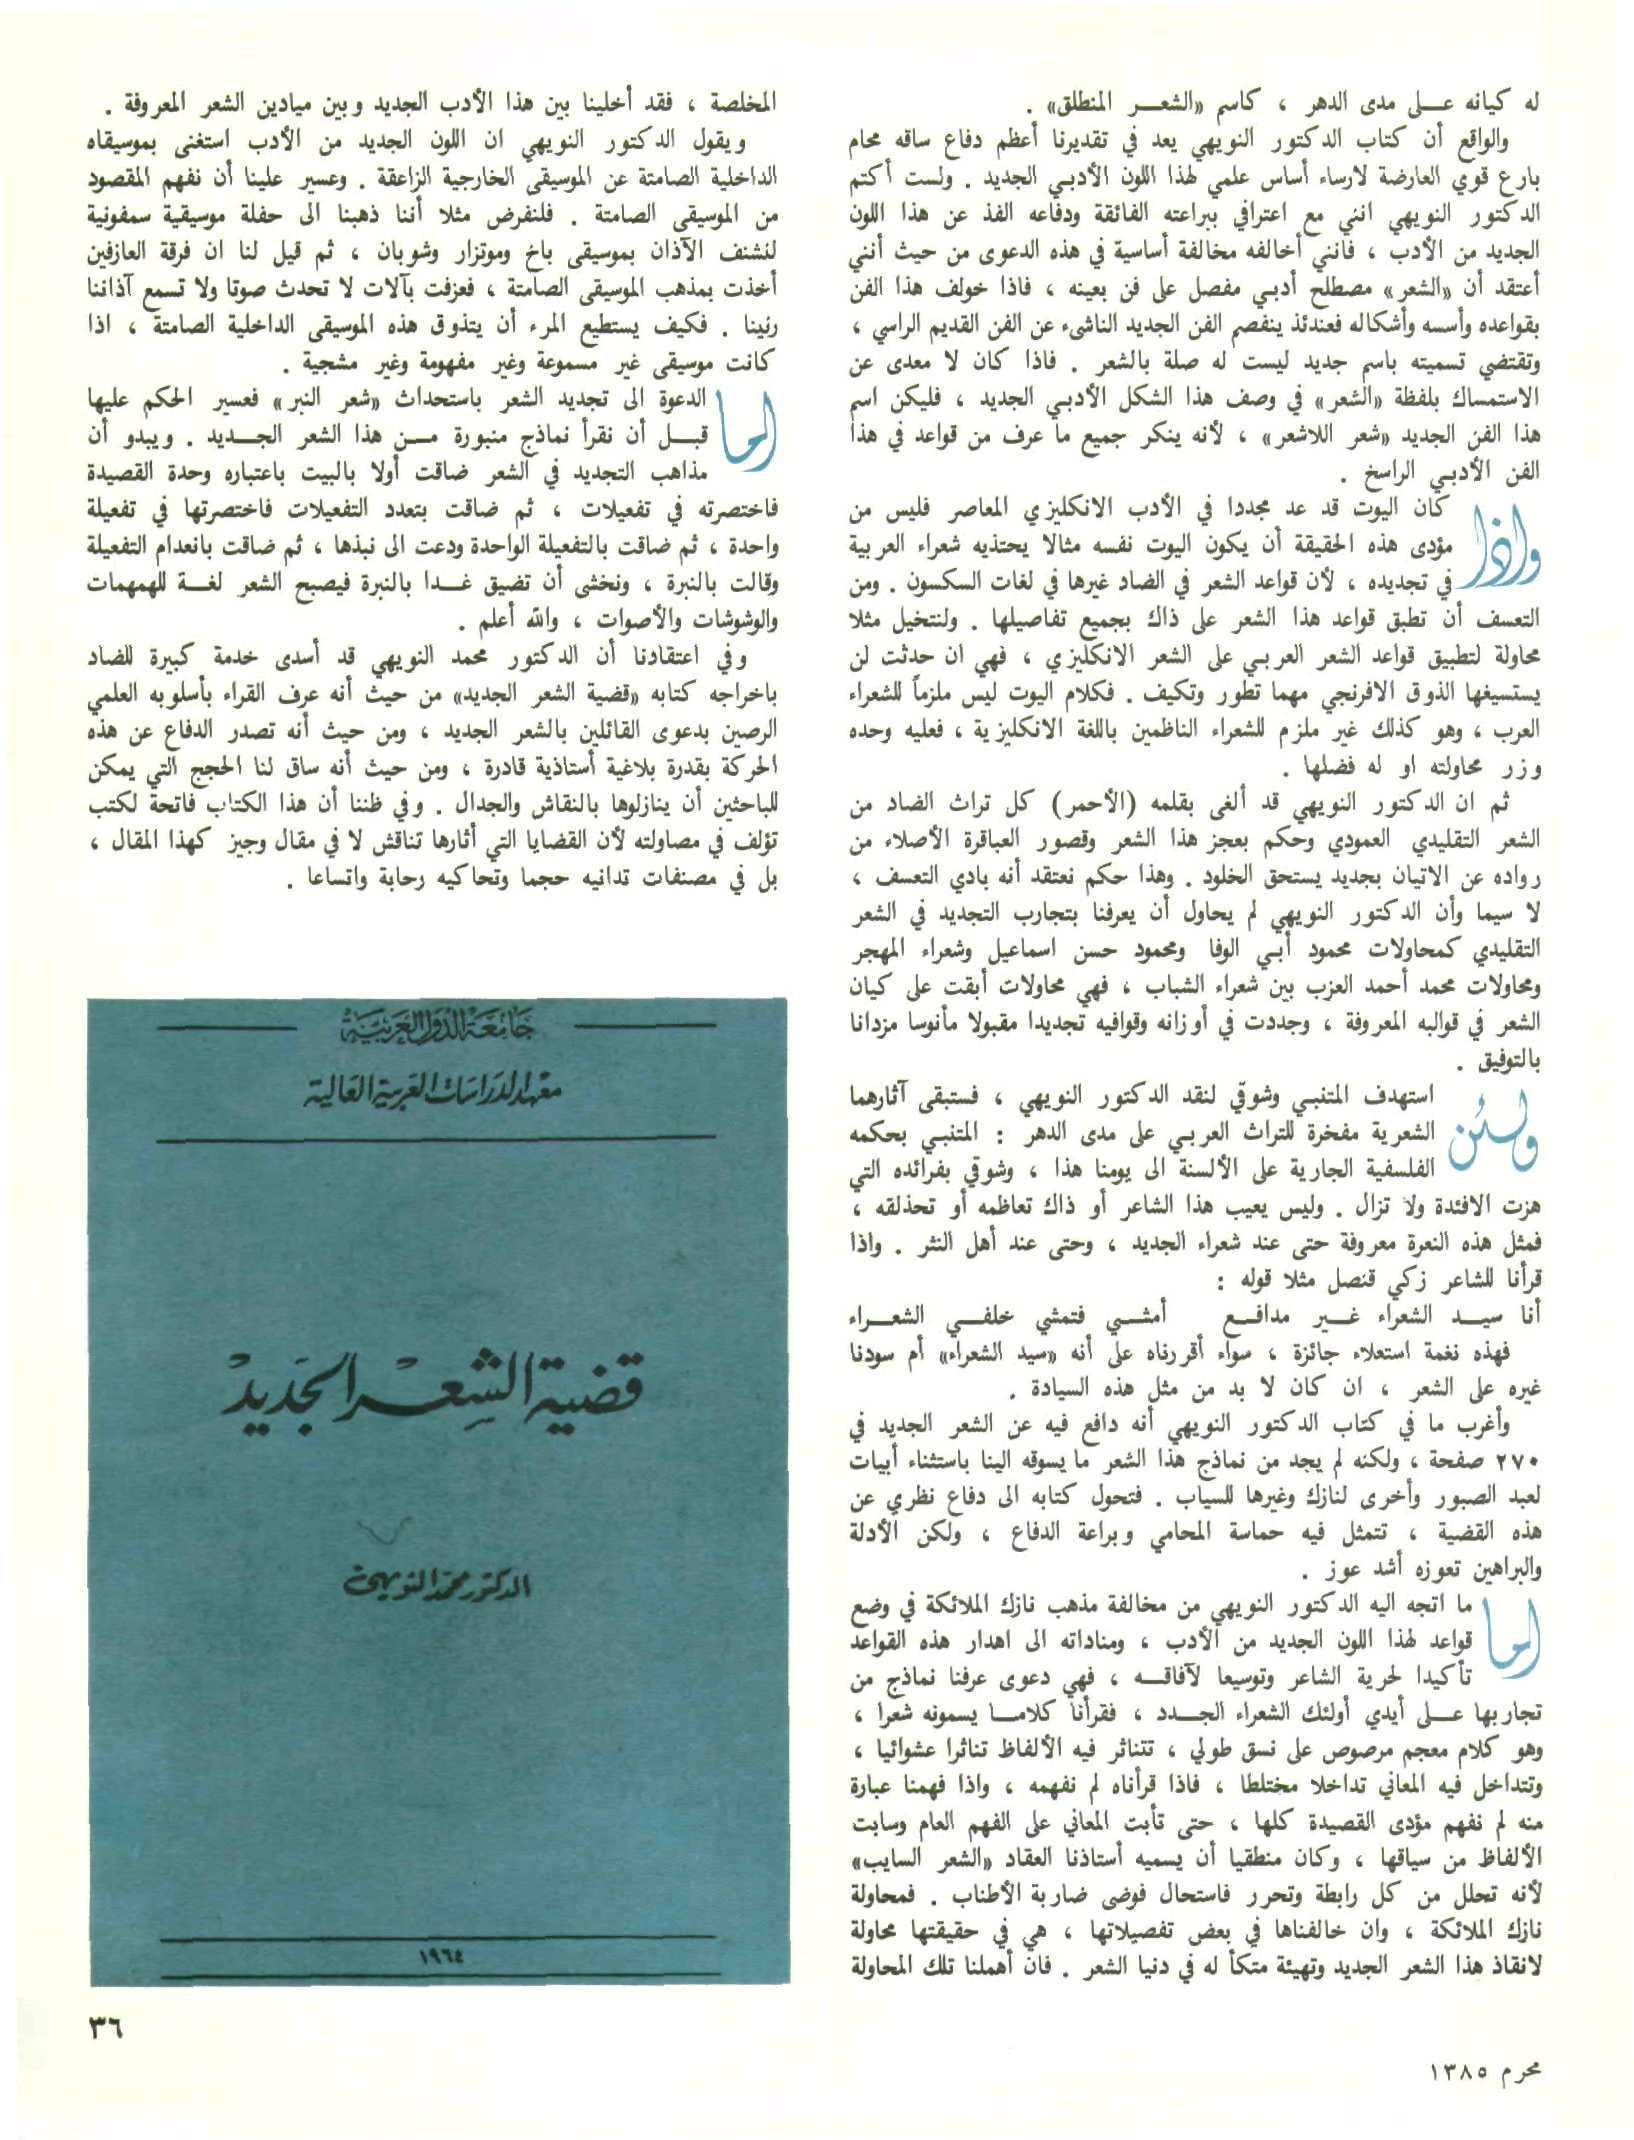 له كيانه على مدى الدهر ، كاسم «الشعر المنطلق» .
والواقع أن كتاب الدكتور النويهي يعد في تقديرنا أعظم دفاع ساقه محام
بارع قوي العارضة لارساء أساس علمي لهذا اللون الأدبي الجديد . ولست أكتم
الدكتور النويهي انني مع اعترافي ببراعته الفائقة ودفاعه الفذ عن هذا اللون
الجديد من الأدب ، فانني أخالفه مخالفة أساسية في هذه الدعوى من حيث أنني
أعتقد أن «الشعر» مصطلح أدبي مفصل على فن بعينه ، فاذا خولف هذا الفن
بقواعده وأسسه وأشكاله فعندئذ ينفصم الفن الجديد الناشىء عن الفن القديم الراسي ،
وتقتضي تسميته باسم جديد ليست له صلة بالشعر . فاذا كان لا معدى عن
الاستمساك بلفظة «الشعر» في وصف هذا الشكل الأدبي الجديد ، فليكن اسم
هذا الفن الجديد «شعر اللاشعر» ، لأنه ينكر جميع ما عرف من قواعد في هذا
الفن الأدبي الراسخ .
واذا كان اليوت قد عد مجددا في الأدب الانكليزي المعاصر فليس من
مؤدى هذه الحقيقة أن يكون اليوت نفسه مثالا يحتذيه شعراء العربية
في تجديده ، لأن قواعد الشعر في الضاد غيرها في لغات السكسون . ومن
التعسف أن تطبق قواعد هذا الشعر على ذاك بجميع تفاصيلها . ولنتخيل مثلا
محاولة لتطبيق قواعد الشعر العربي على الشعر الانكليزي ، فهي ان حدثت لن
يستسيغها الذوق الافرنجي مهما تطور وتكيف . فكلام اليوت ليس ملزماً للشعراء
العرب ، وهو كذلك غير ملزم للشعراء الناظمين باللغة الانكليزية ، فعليه وحده
وزر محاولته او له فضلها .
ثم ان الدكتور النويهي قد ألغى بقلمه (الأحمر) كل تراث الضاد من
الشعر التقليدي العمودي وحكم بعجز هذا الشعر وقصور العباقرة الأصلاء من
رواده عن الاتيان بجديد يستحق الخلود . وهذا حكم نعتقد أنه بادي التعسف ،
لا سيما وأن الدكتور النويهي لم يحاول أن يعرفنا بتجارب التجديد في الشعر
التقليدي كمحاولات محمود أبي الوفا ومحمود حسن اسماعيل وشعراء المهجر
ومحاولات محمد أحمد العزب بين شعراء الشباب ، فهي محاولات أبقت على كيان
الشعر في قوالبه المعروفة ، وجددت في أوزانه وقوافيه تجديدا مقبولا مأنوسا مزدانا
بالتوفيق .
ولئن استهدف المتنبي وشوقي لنقد الدكتور النويهي ، فستبقى آثارهما
الشعرية مفخرة للتراث العربي على مدى الدهر : المتنبي بحكمه
الفلسفية الجارية على الألسنة الى يومنا هذا ، وشوقي بفرائده التي
هزت الافئدة ولا تزال . وليس يعيب هذا الشاعر أو ذاك تعاظمه أو تحذلقه ،
فمثل هذه النعرة معروفة حتى عند شعراء الجديد ، وحتى عند أهل النثر . واذا
قرأنا للشاعر زكي قنصل مثلا قوله :
أنا سيد الشعراء غير مدافع أمشي فتمشي خلفي الشعراء
فهذه نغمة استعلاء جائزة ، سواء أقررناه على أنه «سيد الشعراء» أم سودنا
غيره على الشعر ، ان كان لا بد من مثل هذه السيادة .
وأغرب ما في كتاب الدكتور النويهي أنه دافع فيه عن الشعر الجديد في
٢٧٠ صفحة ، ولكنه لم يجد من نماذج هذا الشعر ما يسوقه الينا باستثناء أبيات
لعبد الصبور وأخرى لنازك وغيرها للسياب . فتحول كتابه الى دفاع نظري عن
هذه القضية ، تتمثل فيه حماسة المحامي وبراعة الدفاع ، ولكن الأدلة
والبراهين تعوزه أشد عوز .
اما ما اتجه اليه الدكتور النويهي من مخالفة مذهب نازك الملائكة في وضع
قواعد لهذا اللون الجديد من الأدب ، ومناداته الى اهدار هذه القواعد
تأكيدا لحرية الشاعر وتوسيعا لآفاقه ، فهي دعوى عرفنا نماذج من
تجاربها على أيدي أولئك الشعراء الجدد ، فقرأنا كلاما يسمونه شعرا ،
وهو كلام معجم مرصوص على نسق طولي ، تتناثر فيه الألفاظ تناثرا عشوائيا ،
وتتداخل فيه المعاني تداخلا مختلطا ، فاذا قرأناه لم نفهمه ، واذا فهمنا عبارة
منه لم نفهم مؤدى القصيدة كلها ، حتى تأبت المعاني على الفهم العام وسابت
الألفاظ من سياقها ، وكان منطقيا أن يسميه أستاذنا العقاد «الشعر السايب»
لأنه تحلل من كل رابطة وتحرر فاستحال فوضى ضاربة الأطناب . فمحاولة
نازك الملائكة ، وان خالفناها في بعض تفصيلاتها ، هي في حقيقتها محاولة
لانقاذ هذا الشعر الجديد وتهيئة متكأ له في دنيا الشعر . فان أهملنا تلك المحاولة
المخلصة ، فقد أخلينا بين هذا الأدب الجديد وبين ميادين الشعر المعروفة .
ويقول الدكتور النويهي ان اللون الجديد من الأدب استغنى بموسيقاه
الداخلية الصامتة عن الموسيقى الخارجية الزاعقة . وعسير علينا أن نفهم المقصود
من الموسيقى الصامتة . فلنفرض مثلا أننا ذهبنا الى حفلة موسيقية سمفونية
لنشنف الآذان بموسيقى باخ وموتزار وشوبان ، ثم قيل لنا ان فرقة العازفين
أخذت بمذهب الموسيقى الصامتة ، فعزفت بآلات لا تحدث صوتا ولا تسمع آذاننا
رنينا . فكيف يستطيع المرء أن يتذوق هذه الموسيقى الداخلية الصامتة ، اذا
كانت موسيقى غير مسموعة وغير مفهومة وغير مشجية .
اما الدعوة الى تجديد الشعر باستحداث «شعر النبر» فعسير الحكم عليها
قبل أن نقرأ نماذج منبورة من هذا الشعر الجديد . ويبدو أن
مذاهب التجديد في الشعر ضاقت أولا بالبيت باعتباره وحدة القصيدة
فاختصرته في تفعيلات ، ثم ضاقت بتعدد التفعيلات فاختصرتها في تفعيلة
واحدة ، ثم ضاقت بالتفعيلة الواحدة ودعت الى نبذها ، ثم ضاقت بانعدام التفعيلة
وقالت بالنبرة ، ونخشى أن تضيق غدا بالنبرة فيصبح الشعر لغة للهمهمات
والوشوشات والأصوات ، والله أعلم .
وفي اعتقادنا أن الدكتور محمد النويهي قد أسدى خدمة كبيرة للضاد
باخراجه كتابه «قضية الشعر الجديد» من حيث أنه عرف القراء بأسلوبه العلمي
الرصين بدعوى القائلين بالشعر الجديد ، ومن حيث أنه تصدر الدفاع عن هذه
الحركة بقدرة بلاغية أستاذية قادرة ، ومن حيث أنه ساق لنا الحجج التي يمكن
للباحثين أن ينازلوها بالنقاش والجدال . وفي ظننا أن هذا الكتاب فاتحة لكتب
تؤلف في مصاولته لأن القضايا التي أثارها تناقش لا في مقال وجيز كهذا المقال ،
بل في مصنفات تدانيه حجما وتحاكيه رحابة واتساعا .
جامعة الدول العربية
معهد الدراسات العربية العالية
قضية الشعر الجديد
الدكتور محمد النويهي
١٩٦٤
٣٦
محرم ١٣٨٥